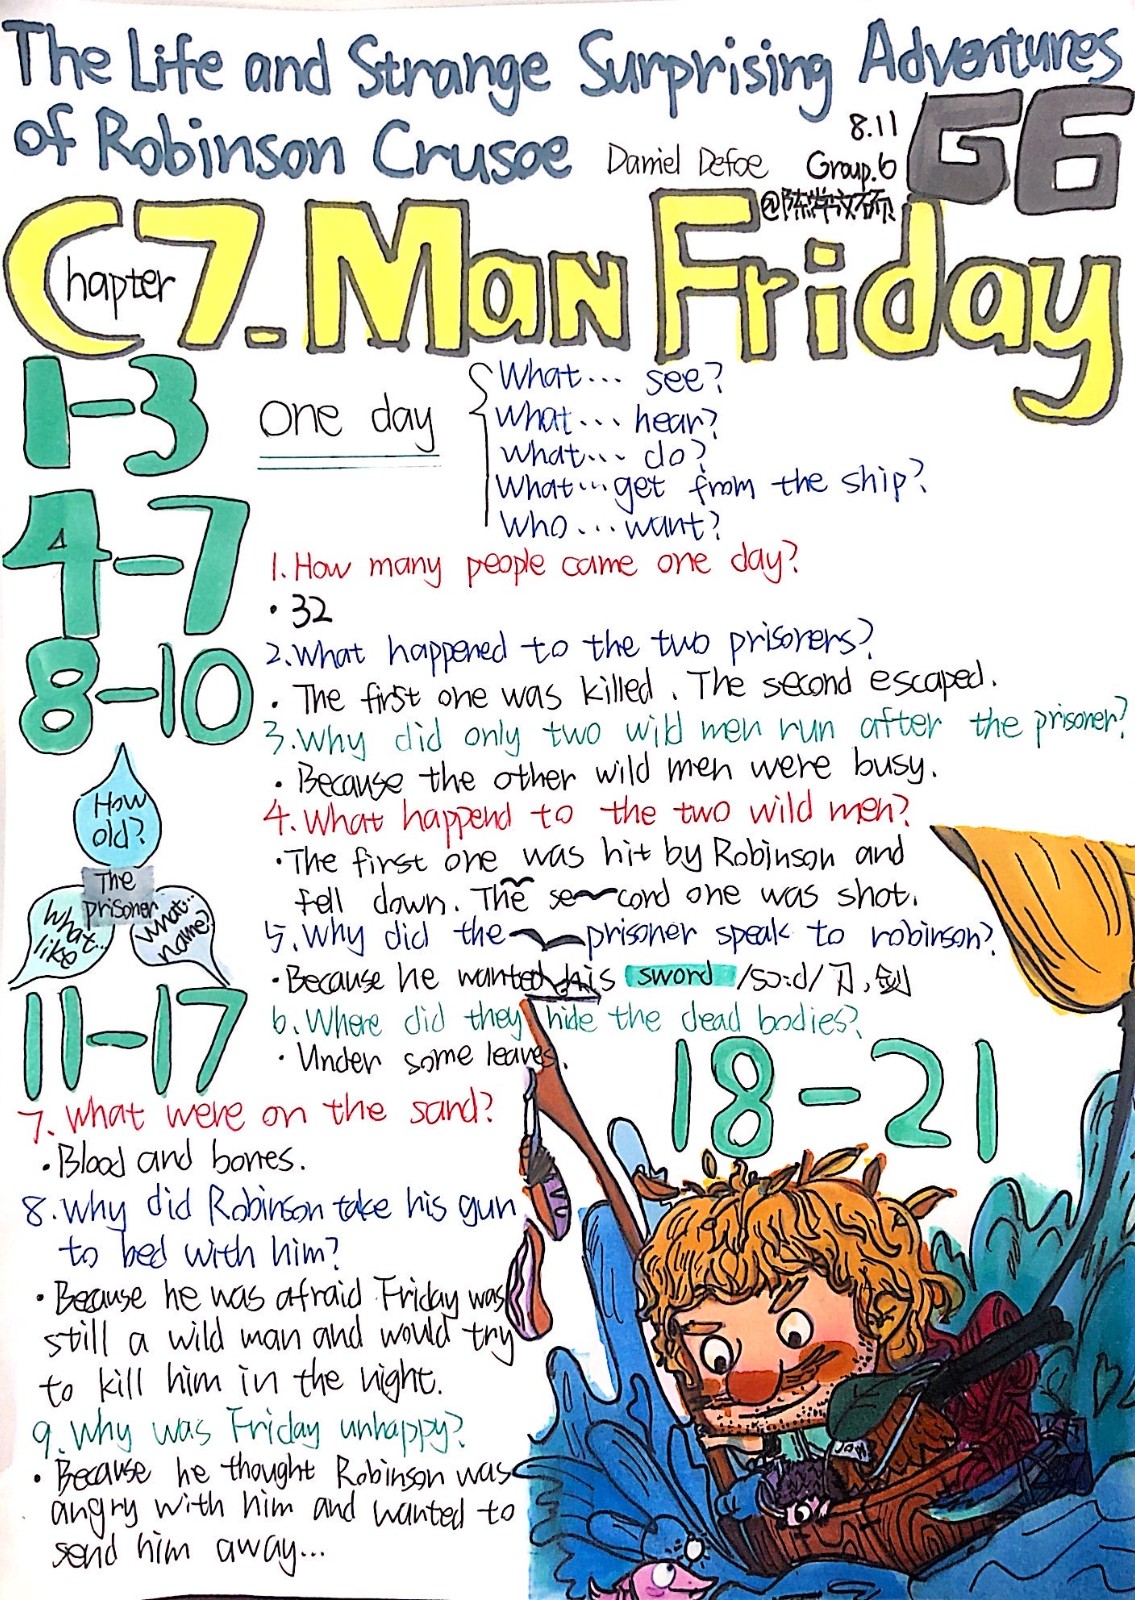 The Life and Strange Surprising Adventures
of Robinson Crusoe
Daniel Defoe
8.11
Group.6
G6
@陈学文硕
Chapter 7. Man Friday
1-3
one day
What... see?
What... hear?
What... do?
What...get from the ship?
Who...want?
4-7
1.How many people came one day?
·32
8-10
2.What happened to the two prisorers?
·The first one was killed. The second escaped.
3.Why did only two wild men run after the prisoner?
·Because the other wild men were busy.
4.What happend to the two wild men?
·The first one was hit by Robinson and
fell down. The second one was shot.
5.Why did the prisoner speak to robinson?
·Because he wanted his sword /sɔ:d/刀,剑
6.Where did they hide the dead bodies?
·Under some leaves.
How
old?
The
prisoner
What..
like
What..
name?
11-17
7.What were on the sand?
·Blood and bones.
8.Why did Robinson take his gun
to bed with him?
·Because he was afraid Friday was
still a wild man and would try
to kill him in the night.
9.Why was Friday unhappy?
·Because he thought Robinson was
angry with him and wanted to
send him away...
18-21